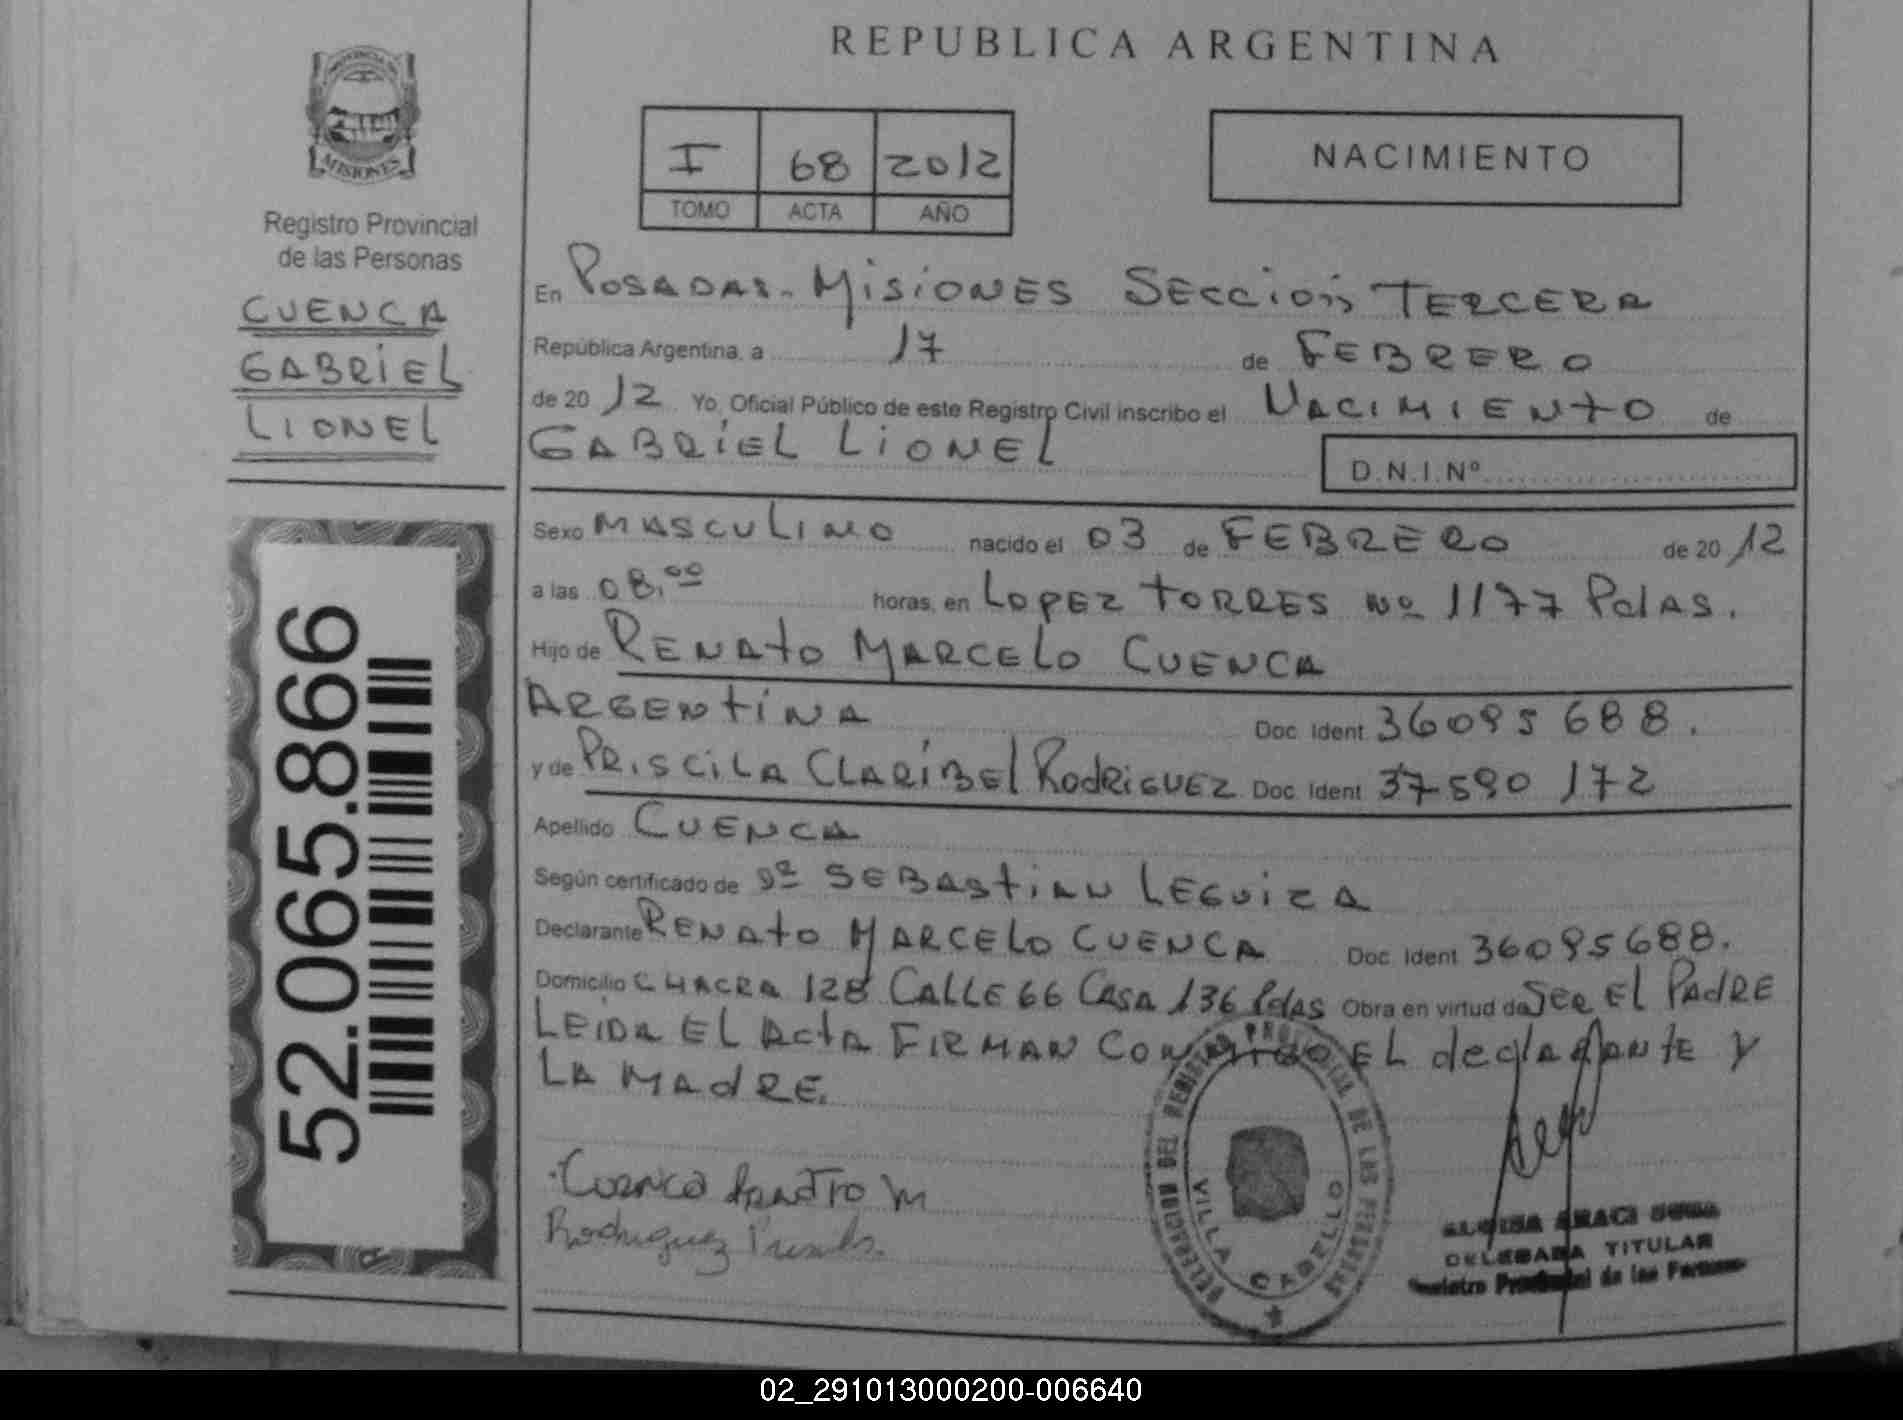 REPUBLICA ARGENTINA
PROVINCIA DE
MISIONES
Registro Provincial
de las Personas
CUENCA
GABRIEL
LIONEL
52.065.866
I 68 2012
TOMO ACTA AÑO
NACIMIENTO
En POSADAS - MISIONES SECCION TERCERA
República Argentina, a 17 de FEBRERO
de 2012 Yo, Oficial Público de este Registro Civil inscribo el NACIMIENTO de
GABRIEL LIONEL
D.N.I.Nº
Sexo MASCULINO nacido el 03 de FEBRERO de 2012
a las 08.00 horas, en LOPEZ TORRES Nº 1177 Pdas.
Hijo de RENATO MARCELO CUENCA
ARGENTINA Doc. Ident. 36095688.
y de PRISCILA CLARIBEL RODRIGUEZ Doc. Ident. 37590172
Apellido CUENCA
Según certificado de SEBASTIAN LEGUIZA
Declarante RENATO MARCELO CUENCA Doc. Ident. 36095688.
Domicilio CHACRA 128 CALLE 66 CASA 136 Pdas Obra en virtud de SER EL PADRE
LEIDA EL ACTA FIRMAN CONMIGO EL declarante y
LA MADRE.
Cuenca Renato M
Rodriguez
DELEGACION DEL REGISTRO PROVINCIAL DE LAS PERSONAS
VILLA CABELLO
ARACI
DELEGADA TITULAR
Registro Provincial de las Personas
02_291013000200-006640